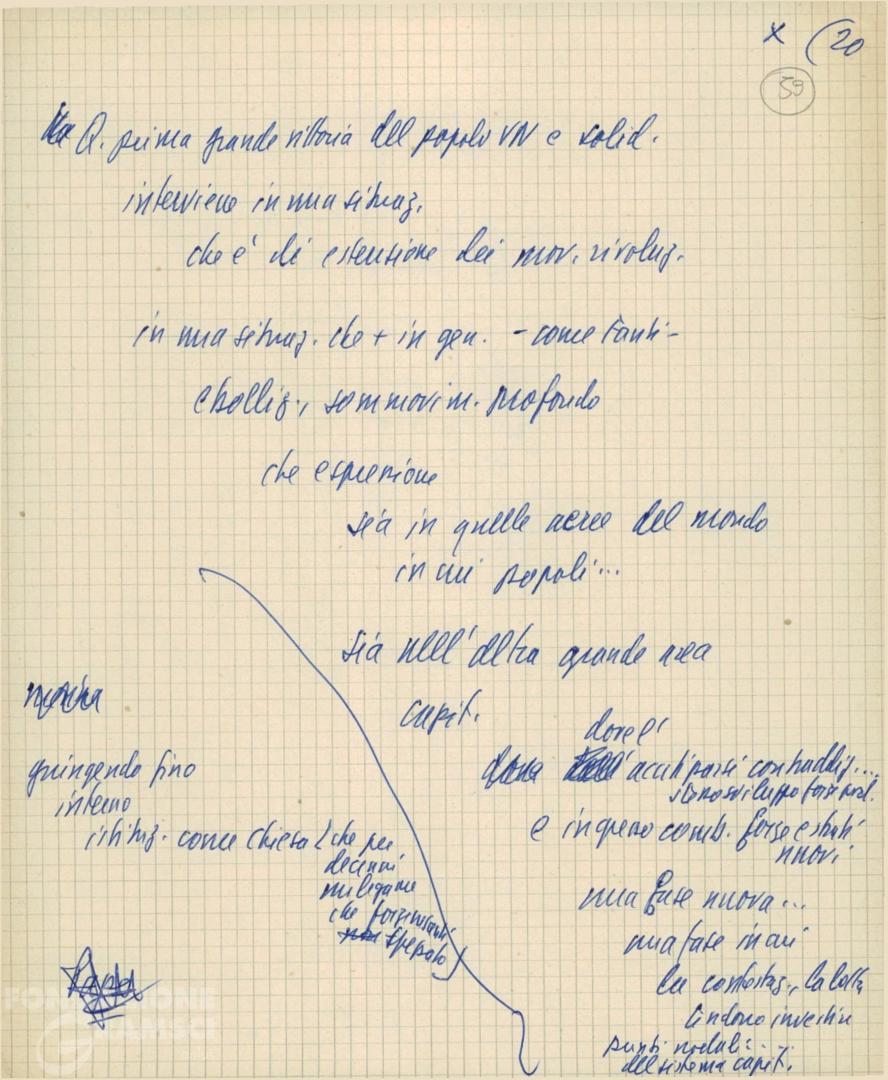 x (20
39
Q. prima grande vittoria del popolo VN e solid.
interviene in una situaz.
che è di estensione dei mov. rivoluz.
in una situaz. che + in gen. - come tanti -
ebolliz., sommovim. profondo
che espressione
sia in quelle aeree del mondo
in cui popoli...
sia nell'altra grande area
capit.
dove l'
acutizzarsi contraddiz....
sviluppo forze prod.
e ingresso comb. forze e strati
nuovi
una fase nuova...
una fase in cui
la contestaz., la lotta
tendono investire
punti nodali...
del sistema capit.
giungendo fino
interno
istituz. come chiesa (che per
decenni